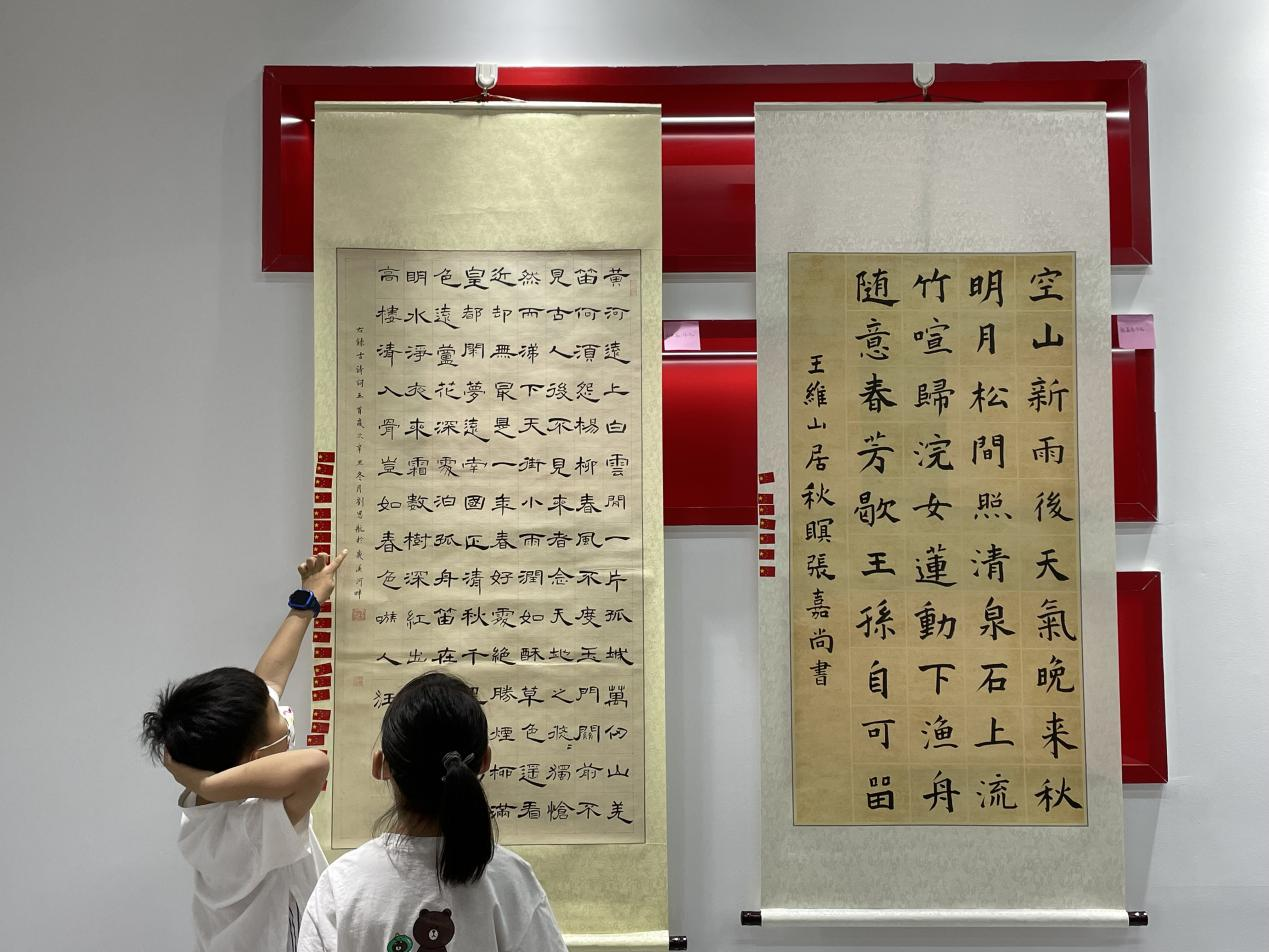 黃河遠上白雲間一片孤城萬仞山羌
笛何須怨楊柳春風不度玉門關前不
見古人後不見來者念天地之悠〻獨愴
然而涕下天街小雨潤如酥草色遥看
近却無最是一年春好處絕勝煙柳滿
皇都閑夢遠南國正清秋千
色遠蘆花深處泊孤舟笛在
明水淨夜來霜數樹深紅出
高樓清入骨豈如春色嗾人狂
右錄古詩詞五首歲次辛丑冬月劉思航於溪河畔
空山新雨後天氣晚来秋
明月松間照清泉石上流
竹喧歸浣女蓮動下漁舟
随意春芳歇王孫自可留
王維山居秋暝張嘉尚書